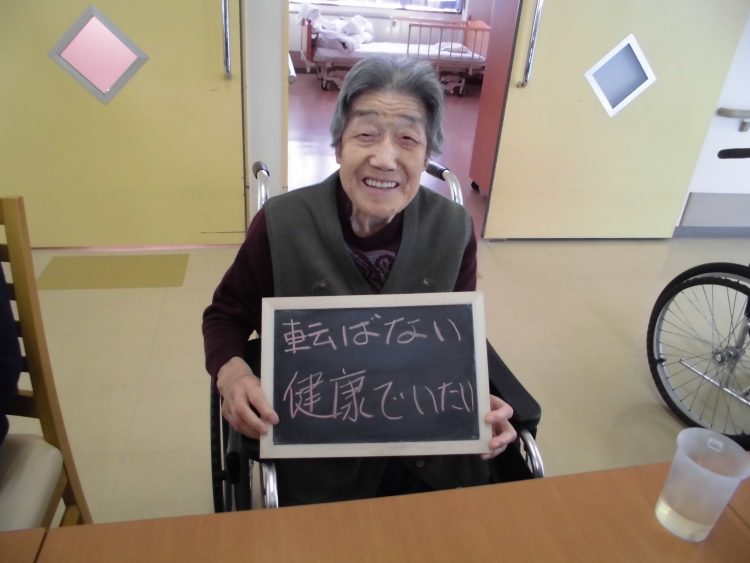 転ばない
健康でいたい